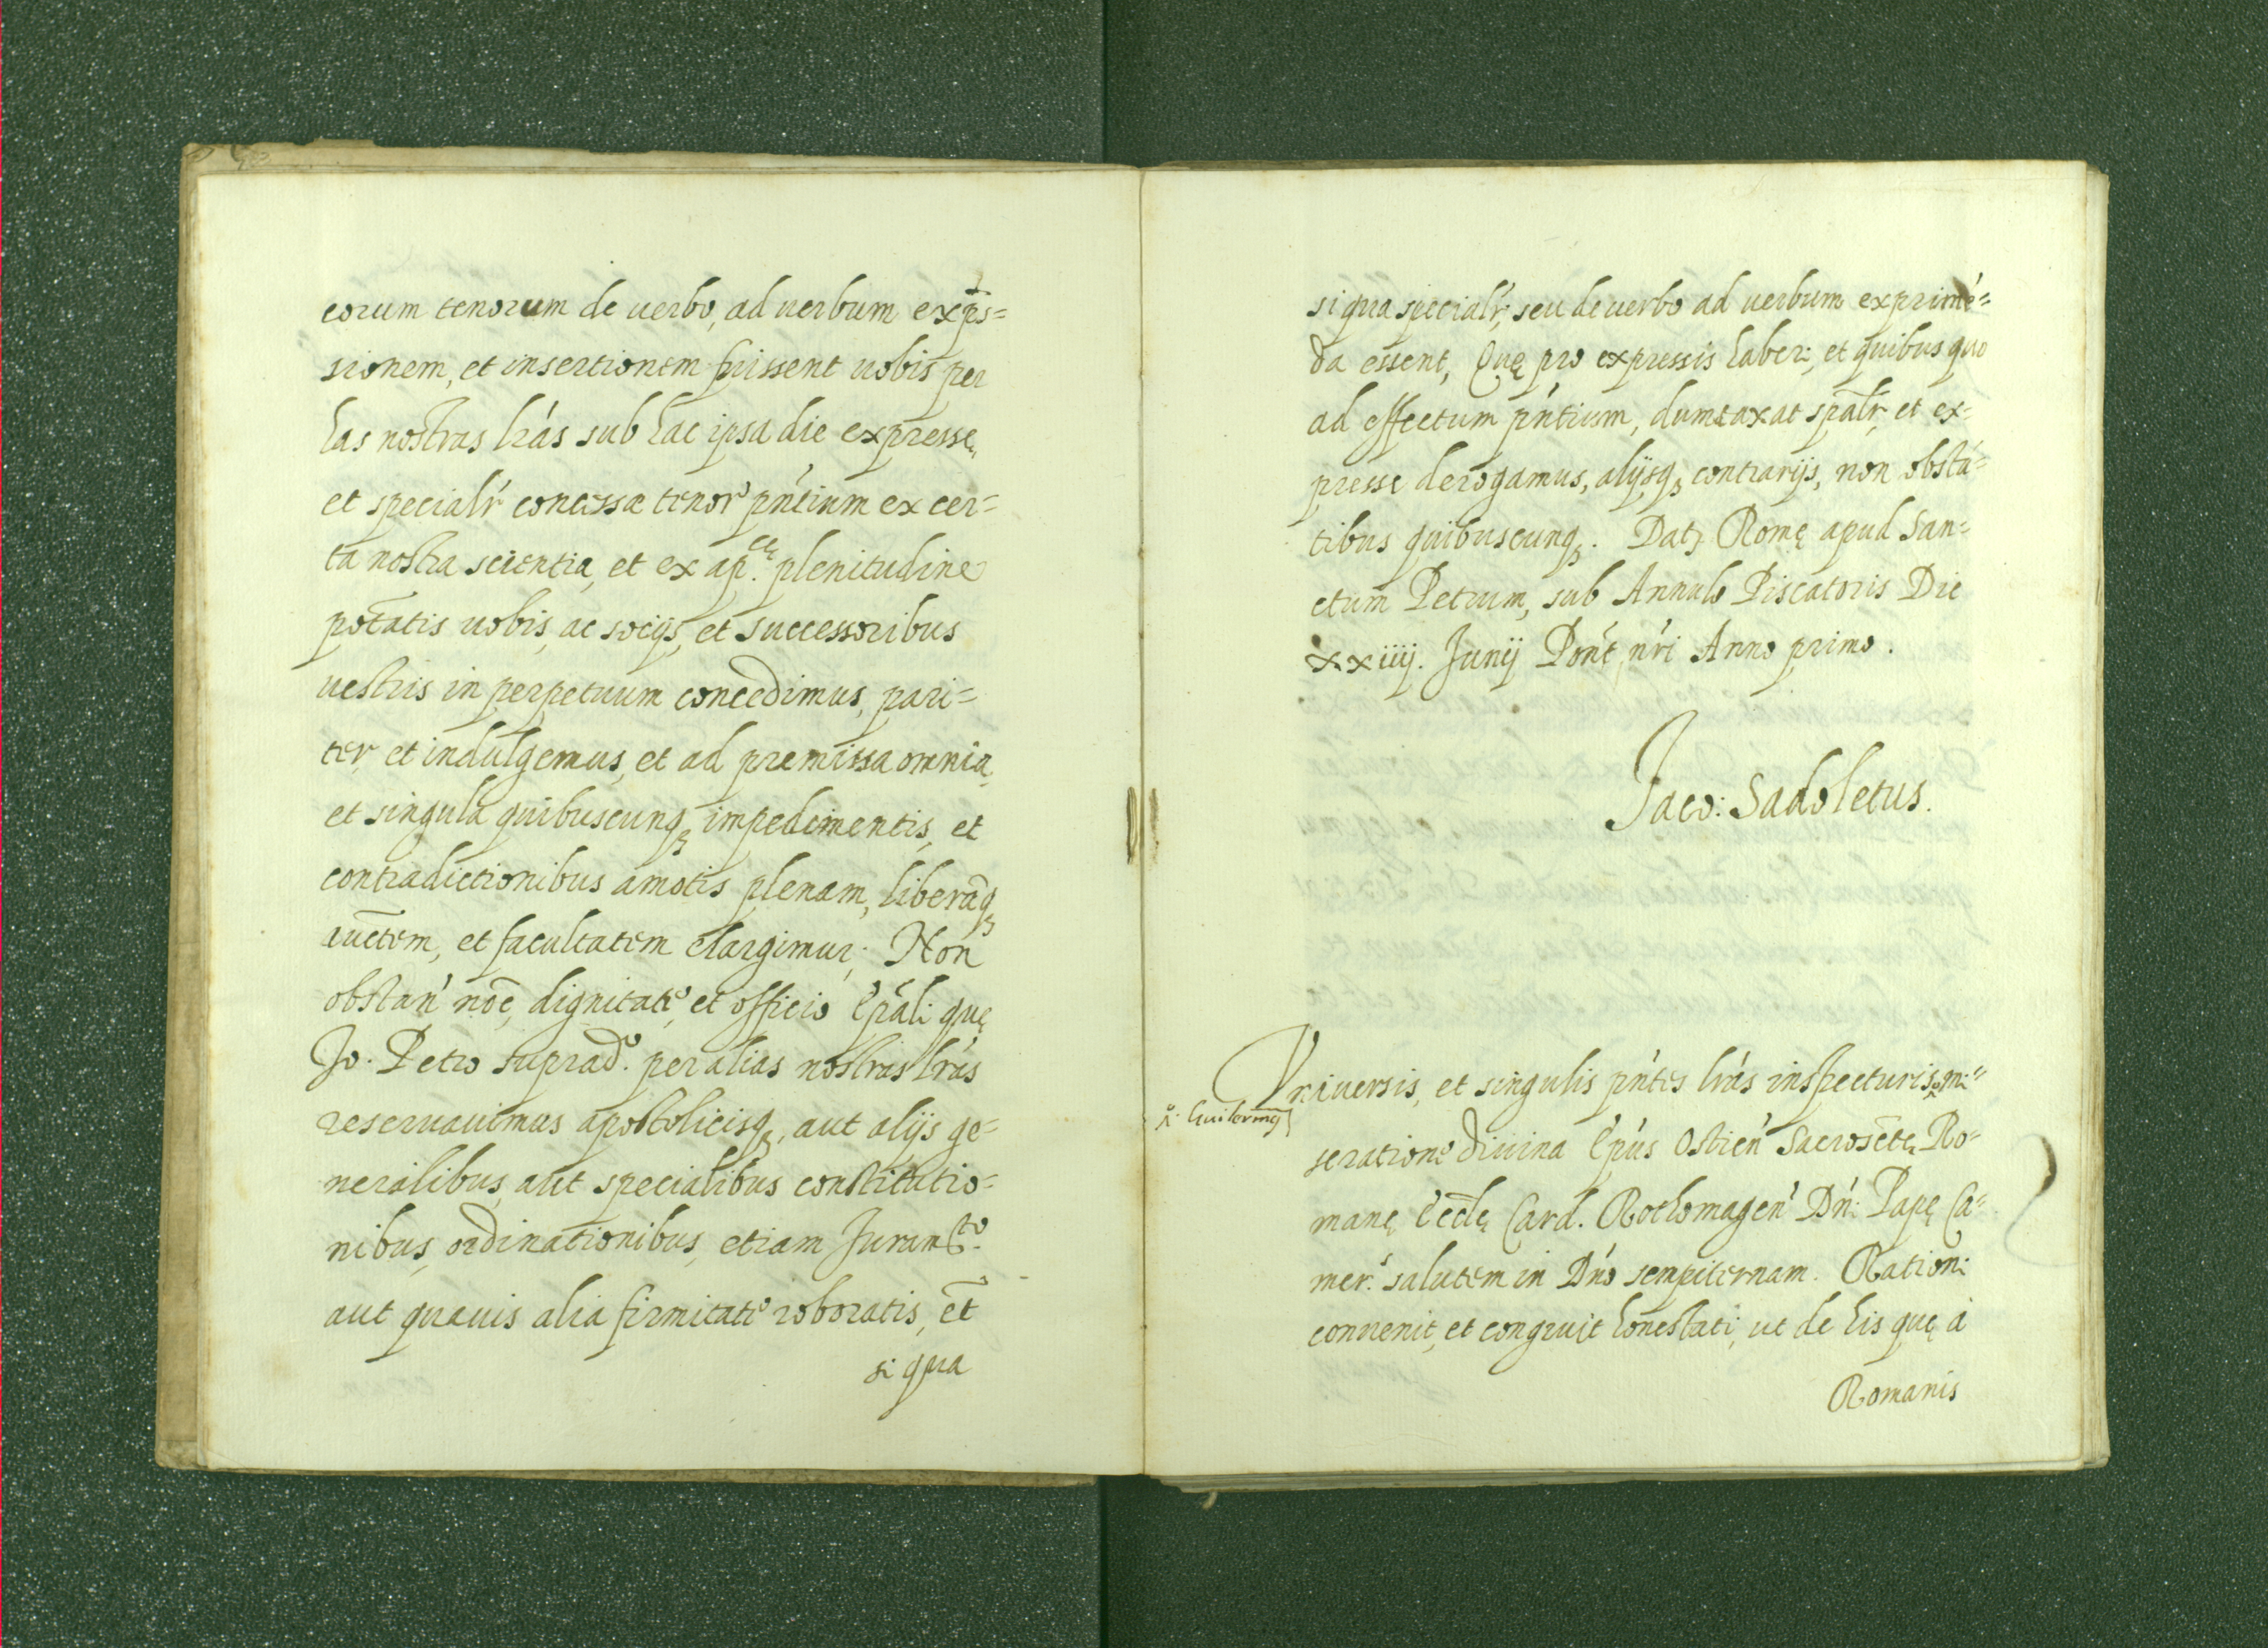 eorum tenorum de uerbo, ad uerbum exp̄s=
sionem, et insertionem fuissent uobis per
has nostras lr̃as sub hac ipsa die expresse,
et specialr̃ concessæ tenore pn̄tium ex cer=
ta nostra scientia, et ex ap.cę plenitudine
potātis uobis, ac socijs, et successoribus
uestris in perpetuum concedimus, pari=
ter, et indulgemus, et ad premissa omnia,
et singula quibuscunq₃ impedimentis, et
contradictionibus amotis plenam, liberāq₃
auctem, et facultatem elargimur; Non
obstan' noē, dignitate, et officio Ep̄ali que
Jo. Petro suprad.o per alias nostras lr̃as
reseruauimus apostolicisq₃, aut alijs ge=
neralibus, aut specialibus constitutio=
nibus, ordinationibus, etiam Juramto.
aut quauis alia firmitate roboratis, et̄
si qua
si qua specialr̃, seu de uerbo ad uerbum exprimē=
da essent, Quę pro expressis haberi, et quibus quo
ad effectum pn̄tium, dumtaxat sp̄alr̃, et ex=
presse derogamus, alijsq₃ contrarijs, non obstā=
tibus quibuscunq₃. Dat₃ Romę apud San=
ctum Petrum, sub Annulo Piscatoris Die
xxiiij. Junij Pont̃ nr̃i Anno primo.
Jaco: Sadoletus.
Vniuersis, et singulis pn̄tes lr̃as inspecturis, mi=
Guilermꝯ
seratione diuina Ep̃us Ostien' Sacrosctę Ro=
manę Eccl̃ę Card. Rothomagen' Dn̄i Papę Ca=
mer.s salutem in Dn̄o sempiternam. Rationi
conuenit, et congruit honestati, ut de his quę à
Romanis